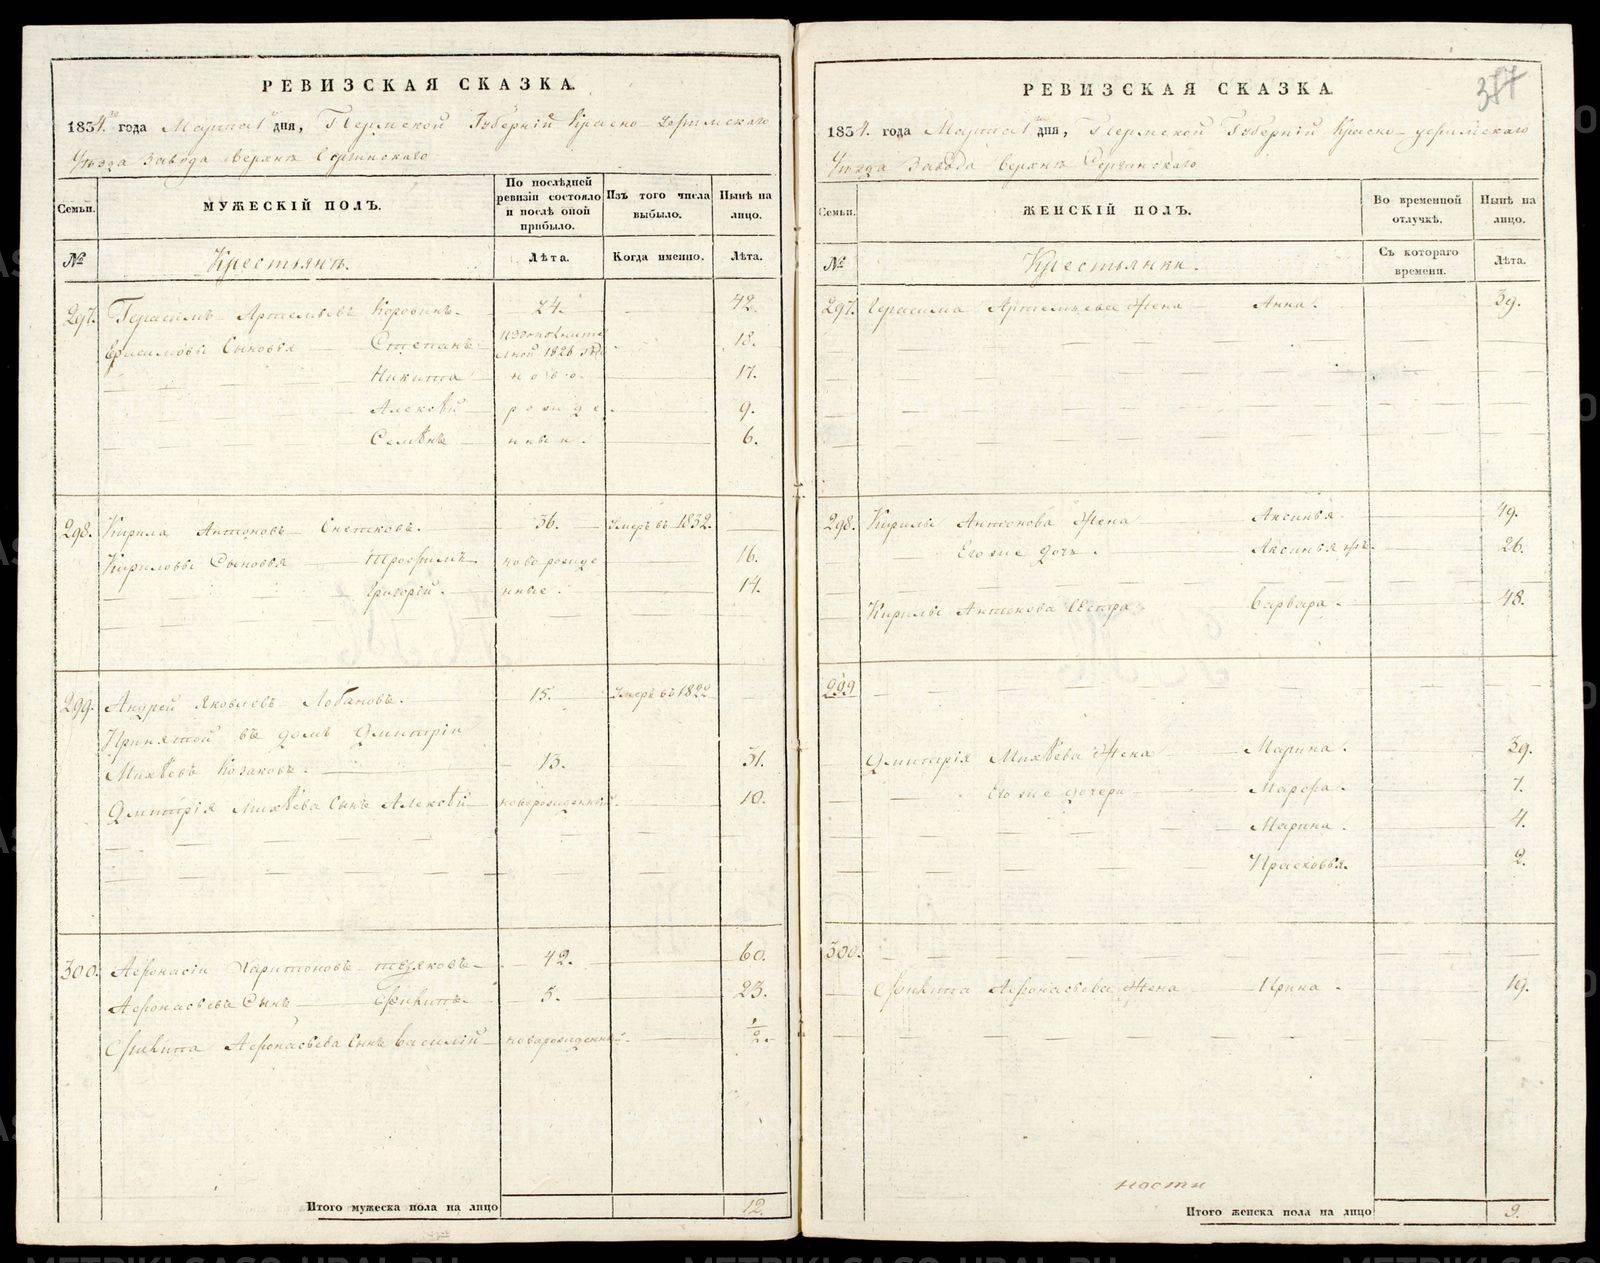 РЕВИЗСКАЯ СКАЗКА.
1834. года Марта 1 дня, Пермской Губернiи Красно-Уфимскаго
Уѣзда Завода Верхнъ Сергинскаго
Семьи.
МУЖЕСКIЙ ПОЛЪ.
По послѣдней ревизiи состояло и послѣ оной прибыло.
Изъ того числа выбыло.
Нынѣ на лицо.
№
Крестьянѣ.
Лѣта.
Когда именно.
Лѣта.
297. Герасимъ Артемьевъ Коровинъ. 24. 42.
Герасимовы Сыновья Степанъ 18.
1826
Никита ново 17.
Алексѣй рожде 9.
Семѣнъ нныи. 6.
298. Кирила Антоновъ Снетковъ. 36. Умеръ въ 1832.
Кириловы Сыновья Трофимъ ново рожде 16.
Григорiй. нные. 14.
299. Андрей Яковлевъ Лобановъ. 15. Умеръ въ 1822
Принятой въ домъ Дмитрiи
Михѣевъ Козаковъ. 13. 31.
Дмитрiя Михѣева Сынъ Алексѣй новорожденный. 10.
300. Афонасiи Харитоновъ 42. 60.
Афонасьевъ Сынъ 5. 23.
Афонасьева Сынъ Василiй новарожденный. 1/2.
Итого мужеска пола на лицо 12.
РЕВИЗСКАЯ СКАЗКА.
377
1834. года Марта 1 дня, Пермской Губернiи Красно-уфимскаго
Уѣзда Завода Верхнъ Сергинскаго
Семьи.
ЖЕНСКIЙ ПОЛЪ.
Во временной отлучкѣ.
Нынѣ на лицо.
№
Крестьянки.
Съ котораго времени.
Лѣта.
297. Герасима Артемьева Жена Анна. 39.
298. Кирилы Антонова Жена Аксинья 49.
Егоже дочь. Аксинья 26.
Кирилы Антонова Сестра Варвара. 48.
299
Дмитрiя Михѣева Жена Марина. 39.
Егоже дочери Марфа. 7.
Марина. 4.
Прасковья. 2.
300.
Афонасьева Жена Ирина. 19.
ности
Итого женска пола на лицо 9.